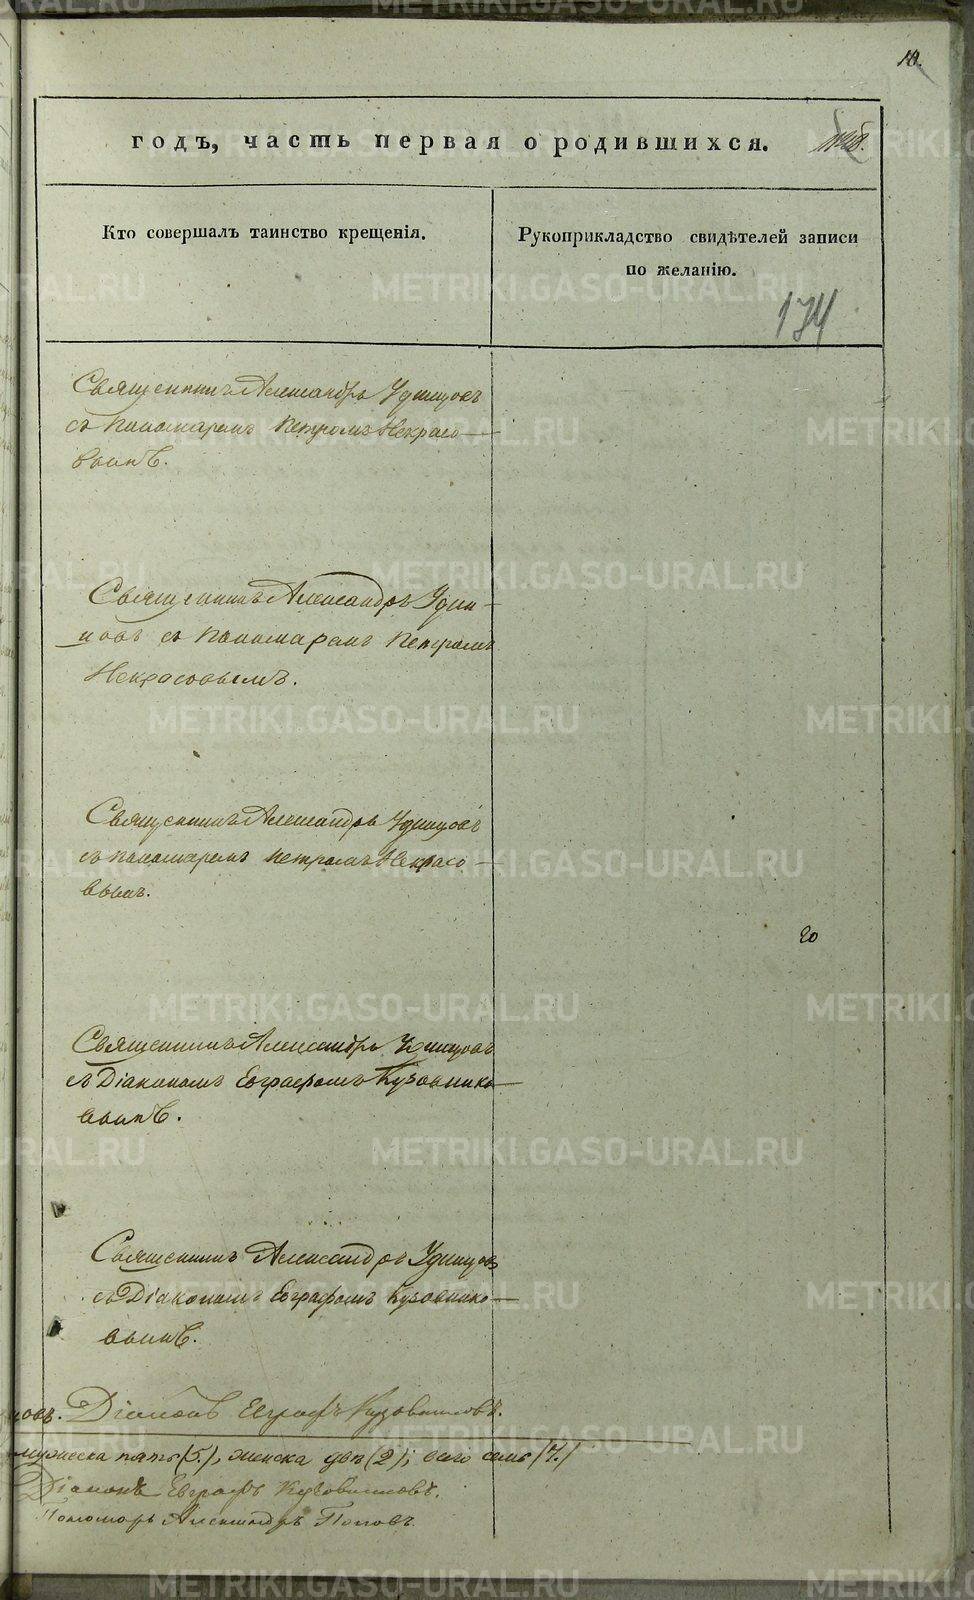 10.
годъ, часть первая о родившихся.
Кто совершалъ таинство крещенія.
Рукоприкладство свидѣтелей записи
по желанію.
174
Священникъ Александръ Удинцовъ
съ пономаремъ Петромъ Некрасо-
вымъ.
Священникъ Александръ Удин-
цовъ съ пономаремъ Петромъ
Некрасовымъ.
Священникъ Александръ Удинцовъ
съ пономаремъ Петромъ Некрасо-
вымъ.
20
Священникъ Александръ Удинцовъ
съ Діакономъ Евграфомъ Кузовнико-
вымъ.
Священникъ Александръ Удинцовъ
съ Діакономъ Евграфомъ Кузовнико-
вымъ.
цовъ. Діаконъ Евграфъ Кузовниковъ.
мужеска пять (5.), женска двѣ (2); всего семь (7.)
Діаконъ Евграфъ Кузовниковъ.
Пономарь Александръ Поповъ.
METRIKI.GASO-URAL.RU